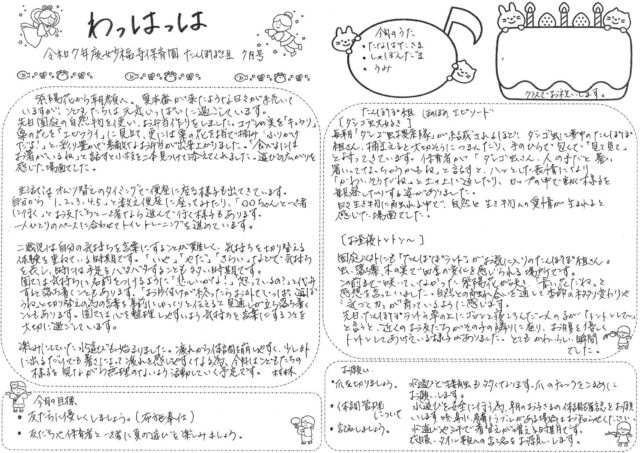 わっはっは
令和7年度妙福寺保育園 たんぽぽ組 7月号
紫陽花から朝顔へ。夏本番が来たような日々が続いて
いますが、子どもたちは元気いっぱいに過ごしています。
先日園庭の自然物を使い、お弁当作りをしました。
草の花を「エビフライ」に見立て、更には葉の花を指で
だよ」と、彩り豊かで素敵なお弁当が出来上がりました。「食べるには
お箸がいるよね」と話すと小枝を二本見つけて添えてくれました。遊びの広がりを
感じた場面でした。
生活ではオムツ替えのタイミングで便座に座る様子も出てきています。
自分から「1,2,3,4,5」と数え便座に座ってみたり、「〇〇ちゃんと一緒
に行く」とお友だちと一緒に自ら進んで行く様子もあります。
一人ひとりのペースに合わせてトイトレーニングを進めています。
二歳児は自分の気持ちを言葉にすることが難しく、気持ちを切り替える
体験を重ねている時期です。「いや」「やだ」「きらい」などで気持ち
を表し、時には手足をバタバタすることも多い時期です。
園では気持ちに名前をつけるように「悲しいかな？」「怒っているの？」と代弁
すると落ち着くこともあります。
ら」と切り替えの為の言葉を事前にゆっくりと伝えると見通しが立ち落ち着く
こともあります。園では心を整理しやすいよう気持ちを言葉にすることを
大切に過ごしています。
楽しみにしていた水遊びも始まりました。疲れから体調を崩しやすく、少し外
に出るだけでも暑さによって疲れを感じやすくなる為、今月は子どもたちの
様子を見ながら無理のないよう活動していく予定です。
今月の目標
・友だちに優しくしましょう。(布施奉仕)
・友だちや保育者と一緒に夏の遊びを楽しみましょう。
今月のうた
・たなばたさま
・しゃぼんだま
・うみ
クラスでお祝いします。
たんぽぽ組 ほのぼのエピソード
【ダンゴ虫大好き】
毎朝「ダンゴ虫探索隊」が結成されるほど、ダンゴ虫に夢中のたんぽぽ
組さん。捕まえると大切そうにつまんだり、手のひらで包んで「見て見て」
とよってきています。保育者が「ダンゴ虫さん、人の手だと暑い
暑いってなっちゃうかもね」と話すと、ハッとした表情になり
「かわいそうだね」と土の上に逃したり、カップの中で動く様子を
観察したりする姿がありました。
日々生き物に触れる中で、自然と生き物への愛情が生まれると
感じた場面でした。
【お昼寝トントン〜】
園庭以外にも「たんぽぽランド」がお気に入りのたんぽぽ組さん。
虫、落ち葉、木の実で四季の変化を感じられる場所です。
この前まで咲いていなかった紫陽花が咲くと「青いねだね」と
感想を言っていました。自然との触れ合いを通して季節の移り変わりや
気づく力が育っているように感じます。
先日、たんぽぽランド草の上にゴロンと寝ころんだ一人の子が「トントンして〜」
と言うと、近くのお友だちがその子の隣りに座り、お腹を優しく
トントンしてあげている様子がありました。とてもかわいらしい瞬間
でした。
お願い
・爪を切りましょう。 水遊びで接触も多くなります。爪のチェックをこまめに
お願いします。
・体調管理
について 水遊びを安全に行う為、朝のお子さまの体調確認をお願
いします。
・記名しましょう。 水遊びや汗で着替えが増える時期です。
衣服・タオル類への記名をお願いします。